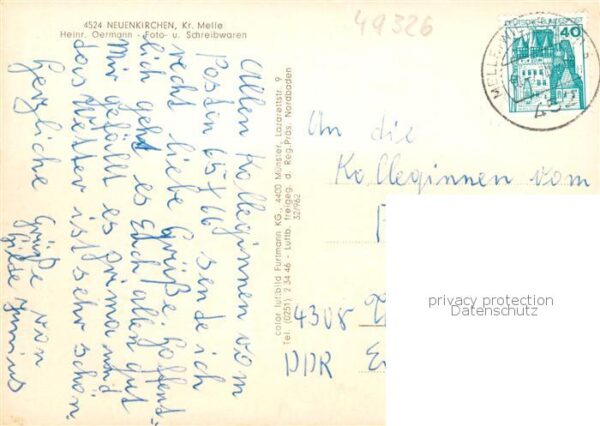 4524 NEUENKIRCHEN, Kr. Melle
Heinr. Oermann - Foto- u. Schreibwaren
49326
DEUTSCHE BUNDESPOST
40
MELLE
452
Allen Kolleginnen vom
Posten 65/66 sende ich
recht liebe Grüße, hoffent-
lich geht es Euch allen gut
Mir gefällt es prima und
das Wetter ist sehr schön.
Herzliche Grüße von
Ilse Junius
color luftbild Furtmann KG., 4400 Münster, Lazarettstr. 9
Tel. (0251) 2 34 46 - Luftb. freigeg. d. Reg.Präs. Nordbaden
32/962
An die
Kolleginnen vom
4308
DDR
privacy protection
Datenschutz